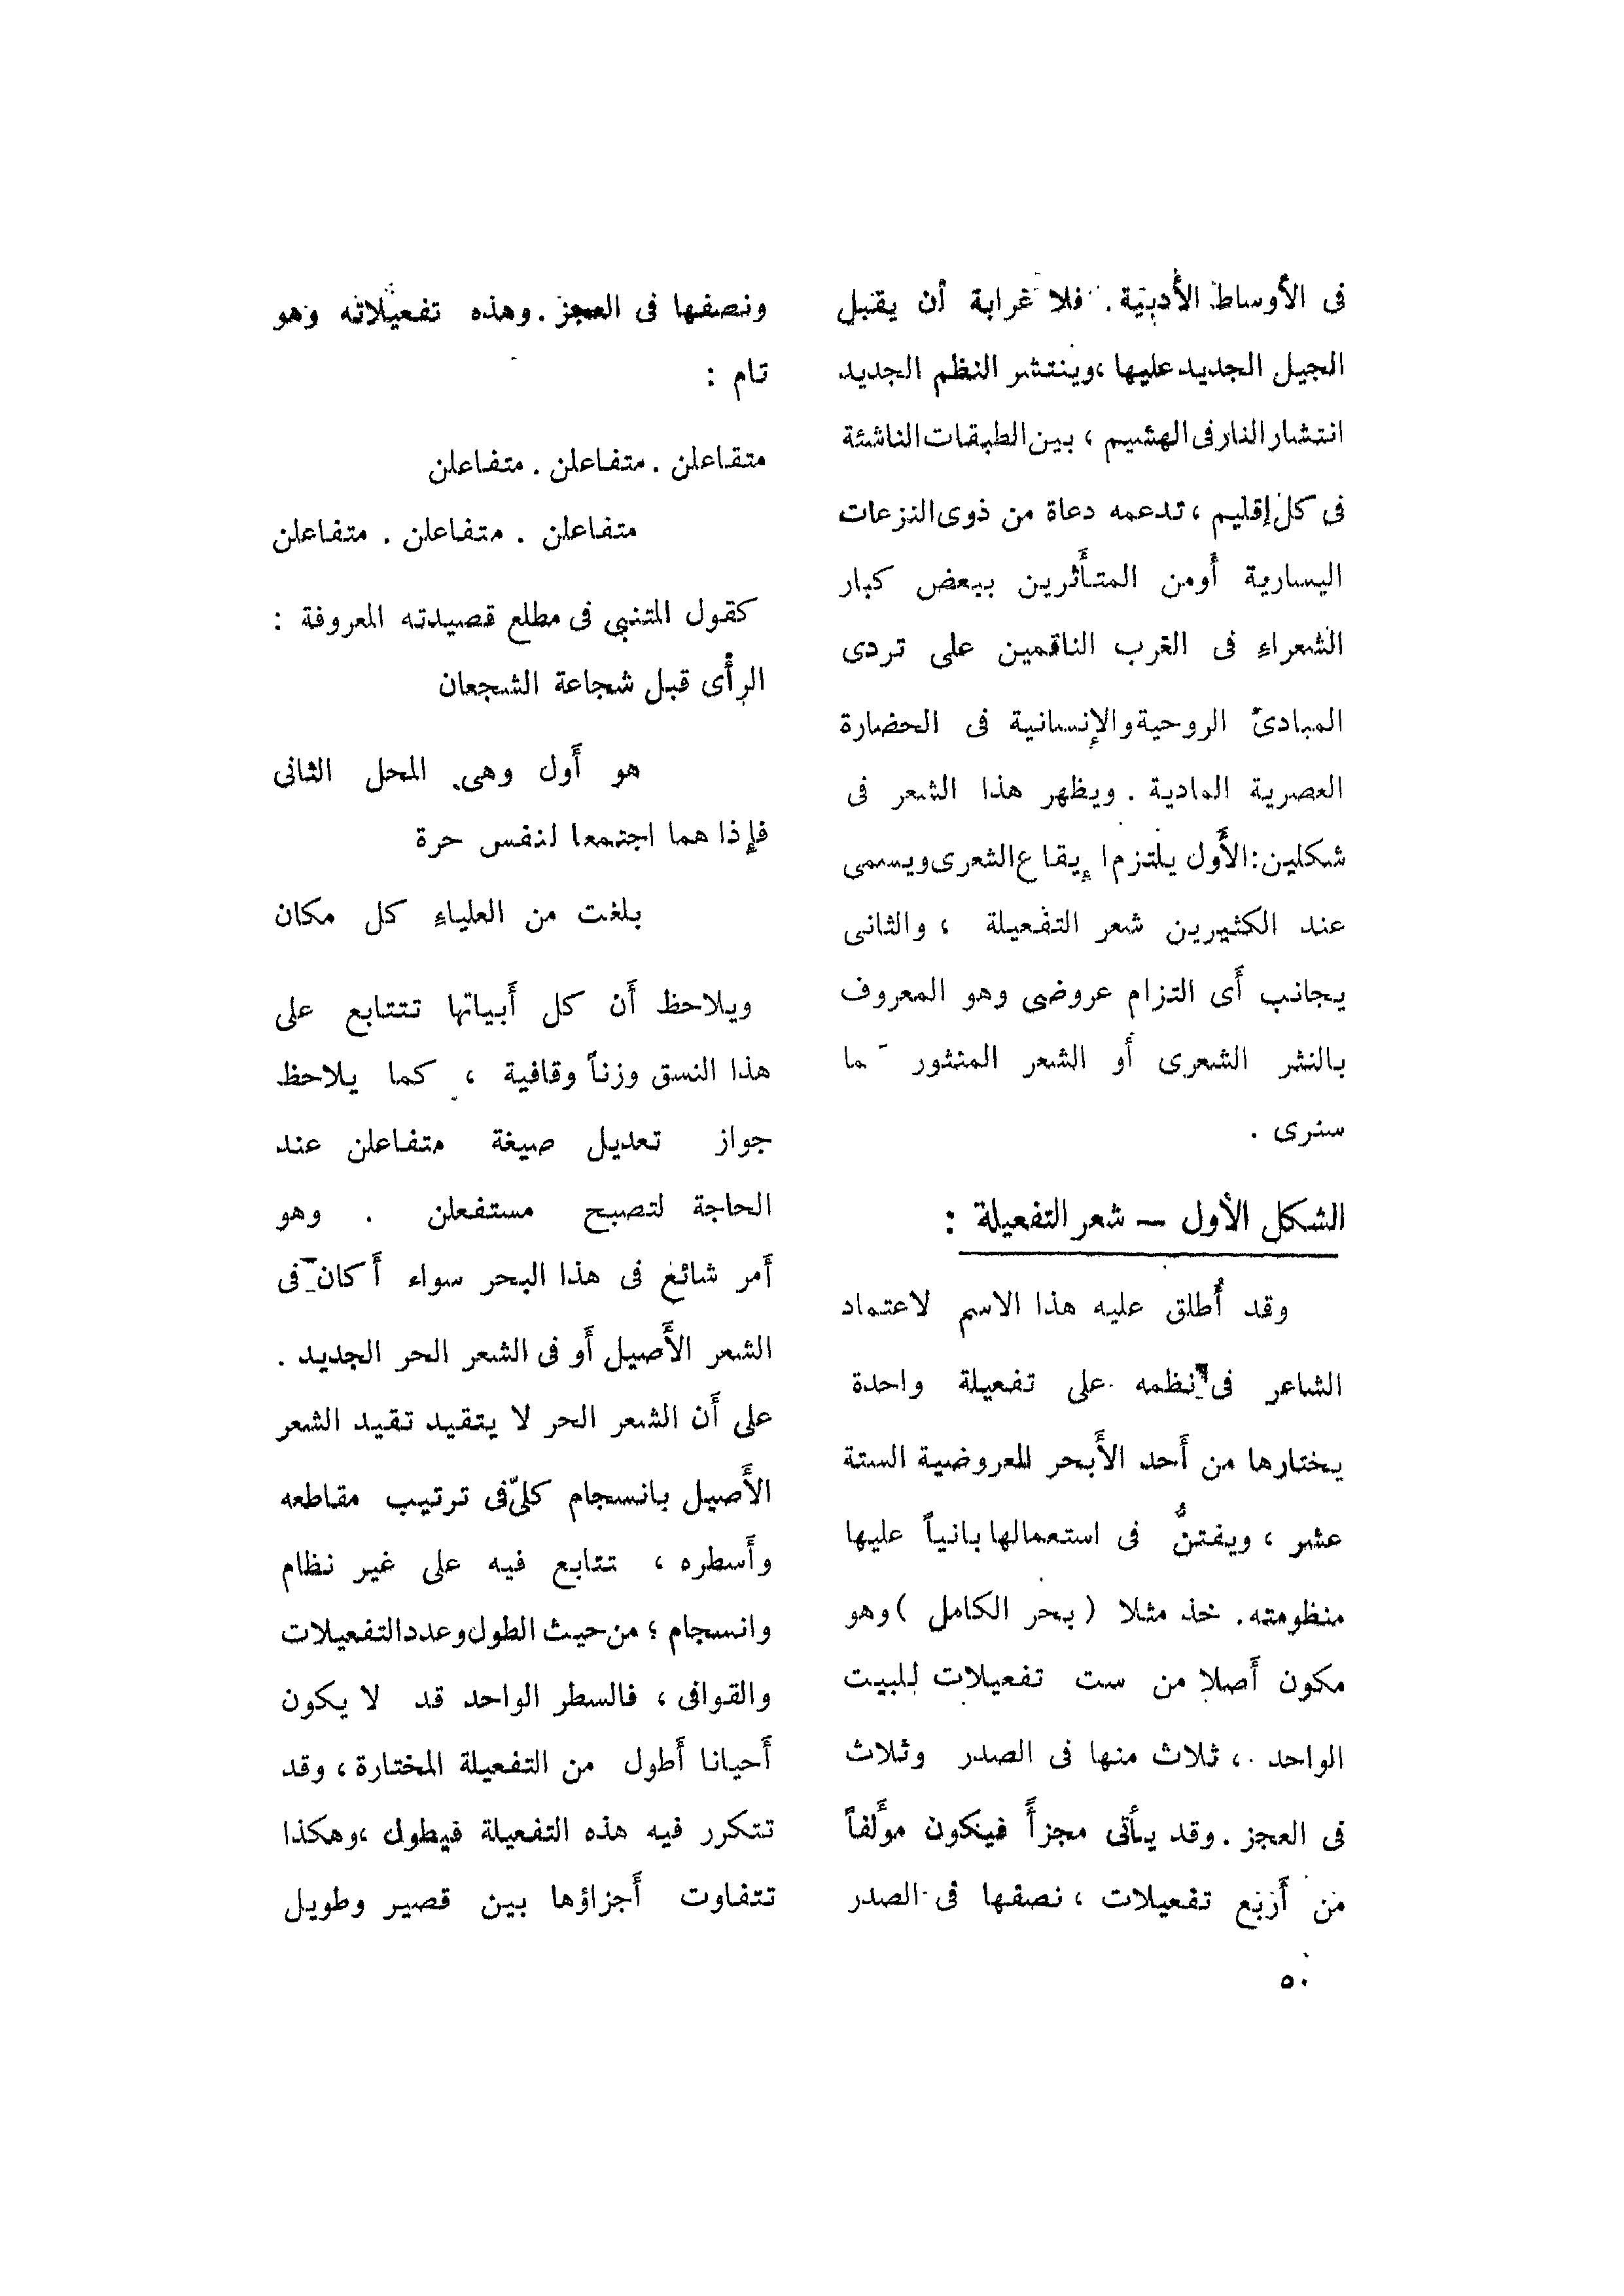 فى الأوساط الأدبية. فلا غرابة أن يقبل
الجيل الجديد عليها ،وينتشر النظم الجديد
انتشار النار فى الهشيم ، بين الطبقات الناشئة
فى كل إقليم ، تدعمه دعاة من ذوى النزعات
اليسارية أومن المتأثرين ببعض كبار
الشعراء فى الغرب الناقمين على تردى
المبادئ الروحية والإنسانية فى الحضارة
العصرية المادية . ويظهر هذا الشعر فى
شكلين : الأول يلتزم ا إيقاع الشعرى ويسمى
عند الكثيرين شعر التفعيلة ، والثانى
يجانب أى التزام عروضى وهو المعروف
بالنثر الشعرى أو الشعر المنثور ما
سنرى .
الشكل الأول — شعر التفعيلة :
وقد أُطلق عليه هذا الاسم لاعتماد
الشاعر فى نظمه على تفعيلة واحدة
يختارها من أحد الأبحر العروضية الستة
عشر ، ويفتنُّ فى استعمالها بانياً عليها
منظومته . خذ مثلا ( بحر الكامل ) وهو
مكون أصلا من ست تفعيلات للبيت
الواحد ، ثلاث منها فى الصدر وثلاث
فى العجز . وقد يأتى مجزأً فيكون مؤلفاً
من أربع تفعيلات ، نصفها فى الصدر
ونصفها فى العجز . وهذه تفعيلاته وهو
تام :
متفاعلن . متفاعلن . متفاعلن
متفاعلن . متفاعلن . متفاعلن
كقول المتنبى فى مطلع قصيدته المعروفة :
الرأى قبل شجاعة الشجعان
هو أول وهى المحل الثانى
فإذا هما اجتمعا لنفس حرة
بلغت من العلياء كل مكان
ويلاحظ أن كل أبياتها تتتابع على
هذا النسق وزناً وقافية ، كما يلاحظ
جواز تعديل صيغة متفاعلن عند
الحاجة لتصبح مستفعلن . وهو
أمر شائع فى هذا البحر سواء أكان فى
الشعر الأصيل أو فى الشعر الحر الجديد .
على أن الشعر الحر لا يتقيد تقيد الشعر
الأصيل بانسجام كلىّ فى ترتيب مقاطعه
وأسطره ، تتابع فيه على غير نظام
وانسجام ؛ من حيث الطول وعدد التفعيلات
والقوافى ، فالسطر الواحد قد لا يكون
أحيانا أطول من التفعيلة المختارة ، وقد
تتكرر فيه هذه التفعيلة فيطول ،وهكذا
تتفاوت أجزاؤها بين قصير وطويل
٥٠